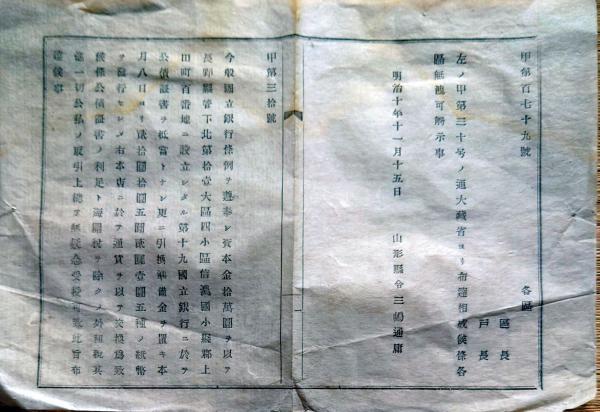 甲第百七十九號
各區
區長
戸長
左ノ甲第三十号ノ通大藏省ヨリ布達相成候條各
區無洩可觸示事
明治十年十一月十五日
山形縣令三嶋通庸
甲第三拾號
今般國立銀行條例ヲ遵奉シ資本金拾萬圓ヲ以テ
長野縣管下北第拾壹大區四小區信濃國小縣郡上
田町百番地ニ設立シタル第十九國立銀行ニ於テ
公債證書ヲ抵當トナシ更ニ引換準備金ヲ置キ本
月八日ヨリ貳拾圓拾圓五圓貳圓壹圓五種ノ紙幣
ヲ發行セシメ右本店ニ於テ通貨ヲ以テ交換為致
候條公債證書ノ利足ト海關税ヲ除クノ外租税其
他一切公私ノ取引上總テ無疑念受授可致此旨布
達候事